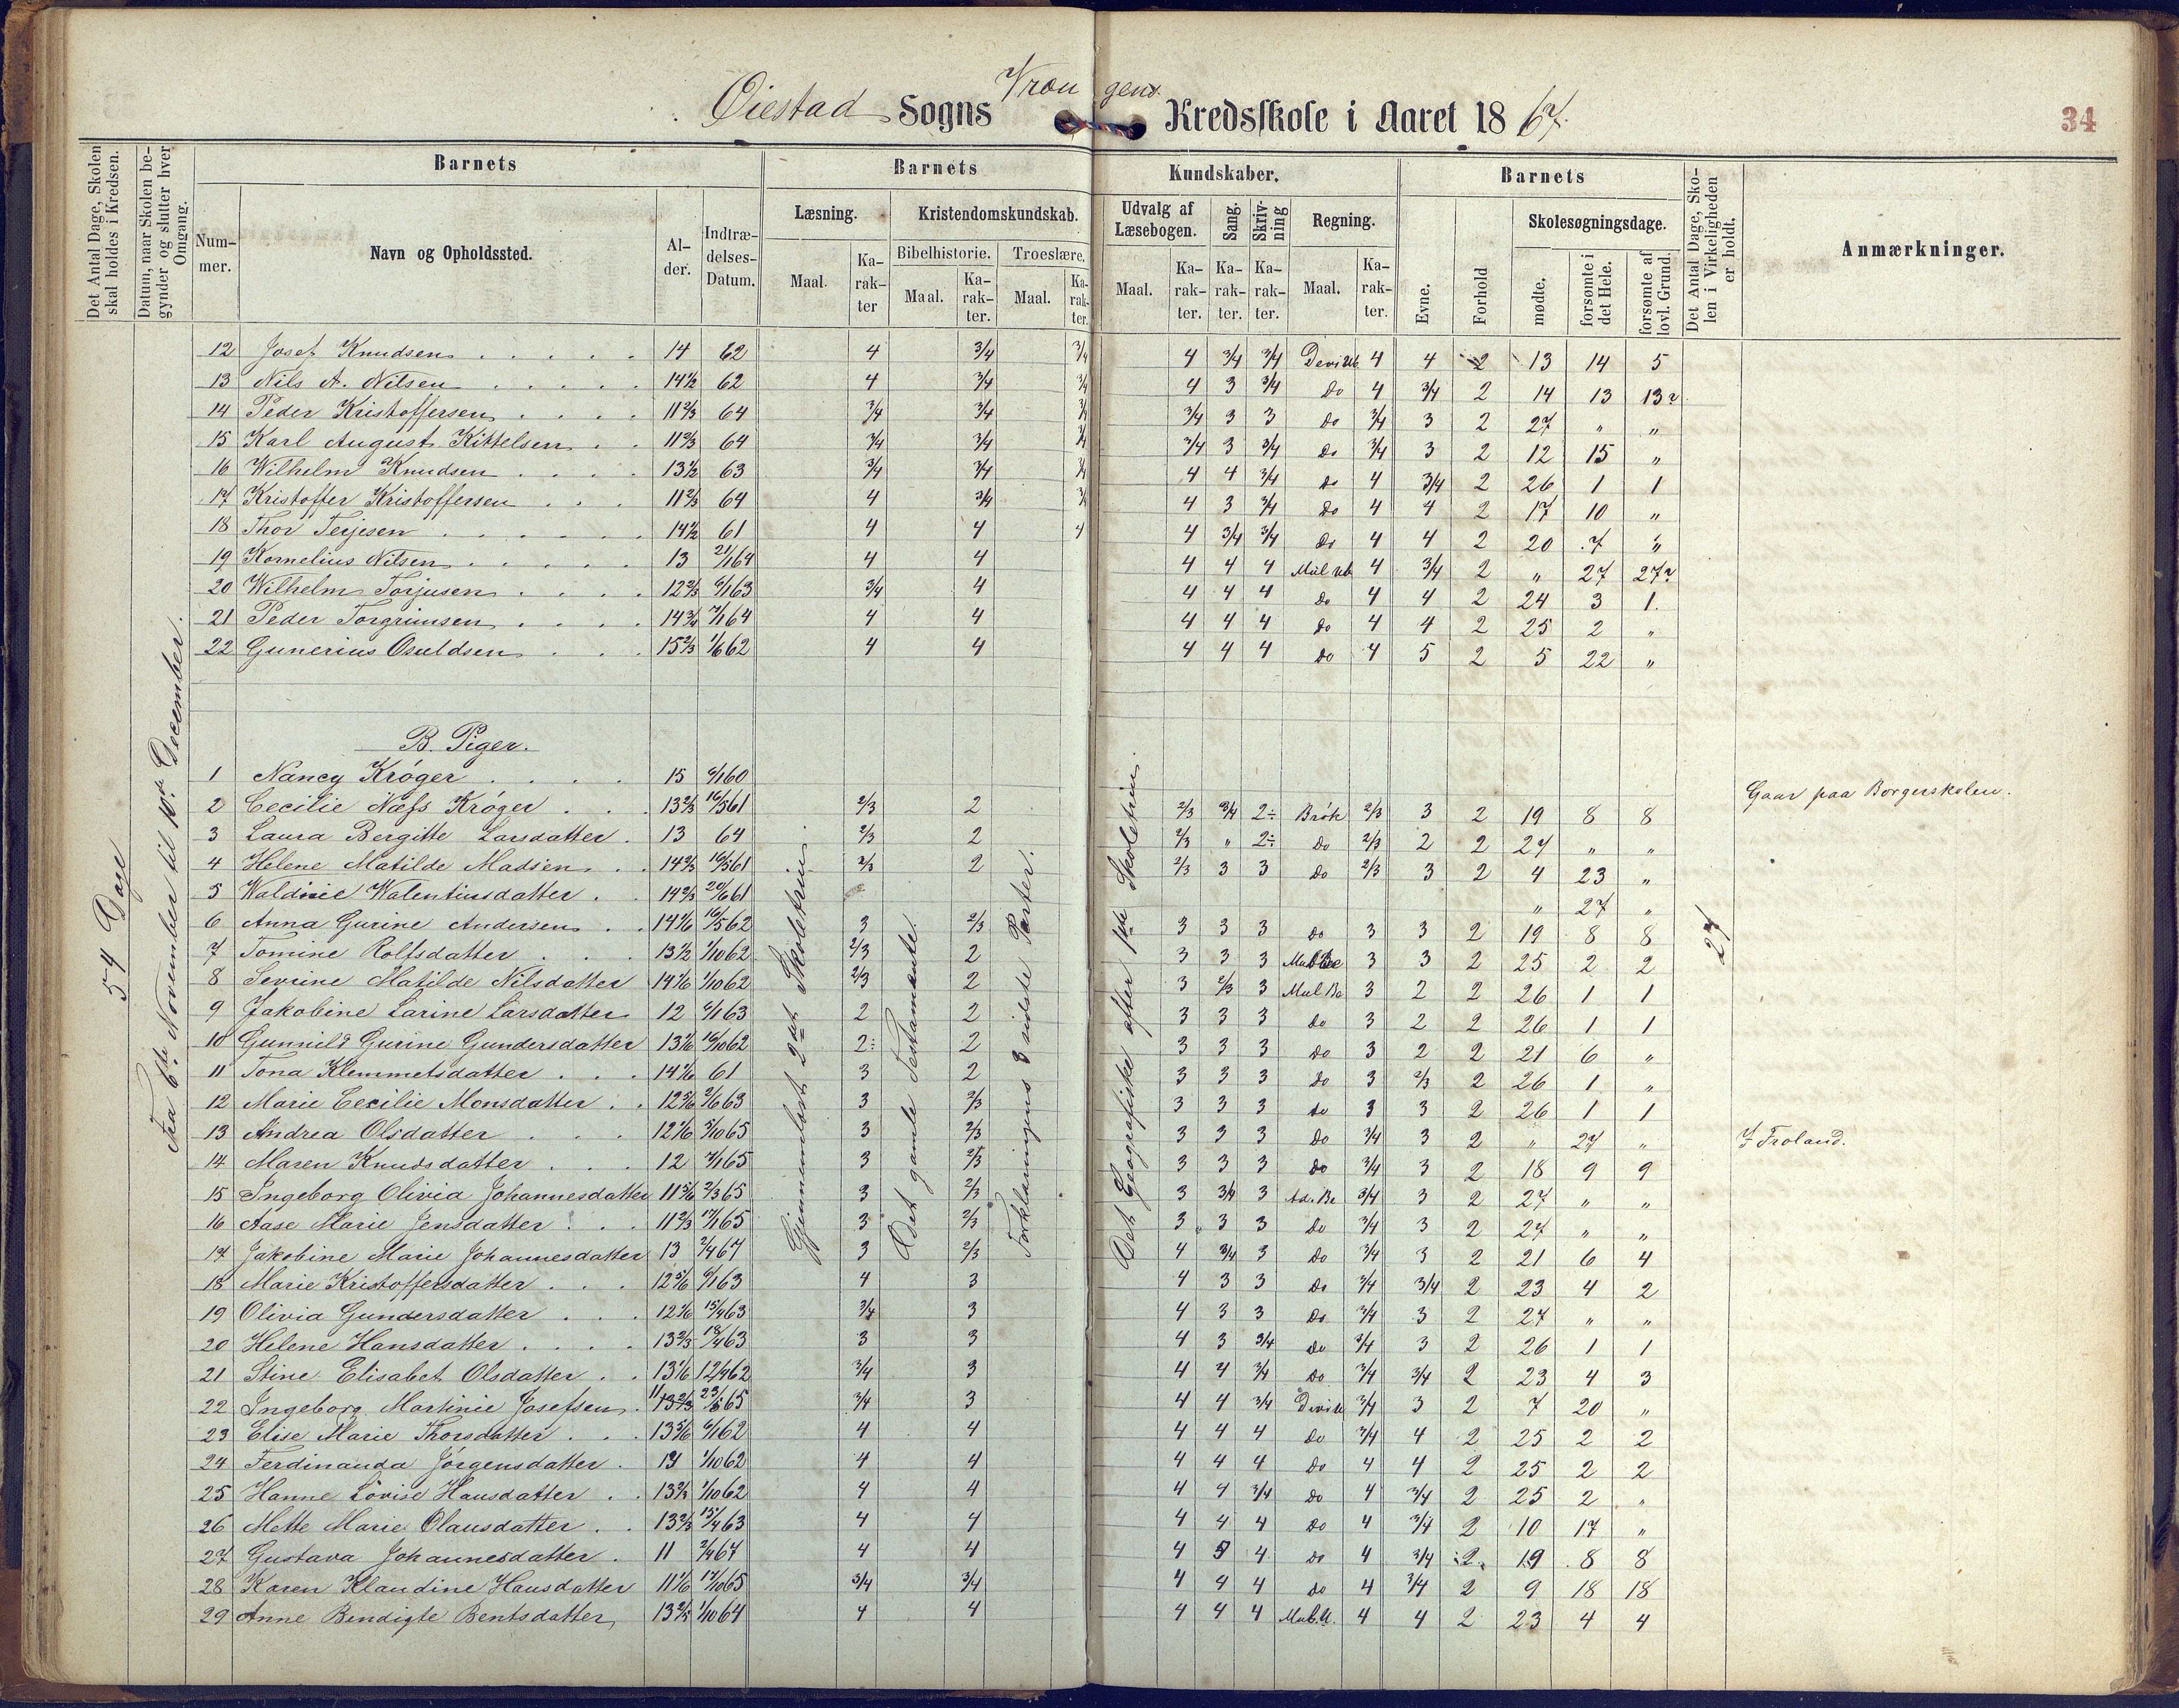 Øiestad Sogns Vrengens Kredsskole i Aaret 1867.
34
Det Antal Dage, Skolen skal holdes i Kredsen.
Datum, naar Skolen begynder og slutter hver Omgang.
Barnets
Barnets
Kundskaber.
Barnets
Det Antal Dage, Skolen i Virkeligheden er holdt.
Anmærkninger.
Nummer.
Navn og Opholdssted.
Alder.
Indtrædelses-Datum.
Læsning.
Kristendomskundskab.
Udvalg af Læsebogen.
Sang.
Skrivning
Regning.
Evne.
Forhold
Skolesøgningsdage.
Bibelhistorie.
Troeslære.
Maal.
Karakter
Maal.
Karakter.
Maal.
Karakter.
Maal.
Karakter.
Karakter.
Karakter.
Maal.
Karakter.
mødte.
forsømte i det Hele.
forsømte af lovl. Grund.
54 Dage
Fra 6te November til 10de December.
12 Josef Knudsen 14 62 4 3/4 3/4 4 3/4 3/4 4 4 2 13 14 5
13 Nils A. Nilsen 14½ 62 4 3/4 3/4 4 3 3/4 do 4 3/4 2 14 13 13
14 Peder Kristoffersen 11 2/3 64 3/4 3/4 3/4 3/4 3 3 do 3/4 3 2 27 " "
15 Karl August Kittelsen 11 2/3 64 3/4 3/4 3/4 3/4 3 3/4 do 3/4 3 2 12 15 "
16 Wilhelm Knudsen 13½ 63 3/4 3/4 3/4 4 4 3/4 do 4 3/4 2 26 1 1
17 Kristoffer Kristoffersen 11 2/3 64 4 3/4 3/4 4 3 3/4 do 4 4 2 17 10 "
18 Thor Terjesen 14½ 61 4 4 4 4 3/4 3/4 do 4 4 2 20 7 "
19 Kornelius Nilsen 13 21/1 64 4 4 4 4 4 Mul Ub 4 3/4 2 " 27 27
20 Wilhelm Torjusen 12 2/3 6/1 63 3/4 4 4 4 4 do 4 4 2 24 3 1.
21 Peder Torgrimsen 14 3/4 7/1 64 4 4 4 4 4 do 4 4 2 25 2 "
22 Gunerius Osuldsen 15 2/3 1/6 62 4 4 4 4 4 do 4 5 2 5 22 "
B. Piger.
1 Nancy Krøger 15 6/1 60 Gaar paa Borgerskolen.
2 Cecilie Næss Krøger 13 2/3 16/5 61 2/3 2 2/3 3/4 2÷ Brøk 2/3 3 2 19 8 8
3 Laura Bergitte Larsdatter 13 64 2/3 2 2/3 " 2÷ do 2/3 2 2 27 " "
4 Helene Matilde Madsen 14 2/3 16/5 61 2/3 2 2/3 3 3 do 2/3 3 2 4 23 "
5 Waldine Walentinsdatter 14 2/3 20/6 61 " 27 "
6 Anna Gurine Andersen 14 1/6 16/5 62 3 2/3 3 3 3 do 3 3 2 19 8 8
7 Tomine Rolfsdatter 13½ 1/10 62 2/3 2 3 3 3 3 3 2 25 2 2
8 Sevrine Matilde Nilsdatter 14 1/6 1/10 62 2/3 2 3 2/3 3 Mul Be 3 2 2 26 1 1
9 Jakobine Larine Larsdatter 12 6/1 63 2 2 3 3 3 do 3 2 2 26 1 1
10 Gunnild Gurine Gundersdatter 13 1/6 16/10 62 2÷ 2 3 3 3 do 3 2 2 21 6 "
11 Tona Klemmetsdatter 14 1/6 61 3 2 3 3 3 do 3 2/3 2 26 1 "
12 Marie Cecilie Monsdatter 12 5/6 2/6 63 3 2/3 3 3 3 do 3 3 2 26 1 1
13 Andrea Olsdatter 12 1/6 3/10 65 3 2/3 3 3 3 do 3/4 3 2 " 27 " I Froland.
14 Maren Knudsdatter 12 7/1 65 3 2/3 3 3 3 do 3/4 3 2 18 9 9
15 Ingeborg Olivia Johannesdatter 11 5/6 2/3 65 3 2/3 3 3/4 3 Ad. Be 3/4 3 2 27 " "
16 Aase Marie Jensdatter 11 2/3 17/1 65 3 2/3 3 3 3 do 3/4 3 2 27 " "
17 Jakobine Marie Johannesdatter 13 2/4 67 3 2/3 4 3/4 3 do 3/4 3 2 21 6 4
18 Marie Kristoffersdatter 12 5/6 6/1 63 4 3 4 3 3 do 3/4 3/4 2 23 4 2
19 Olivia Gundersdatter 12 1/6 15/4 63 3/4 3 4 3 3 do 3/4 3 2 27 " "
20 Helene Hansdatter 13 2/3 18/4 63 3 3 4 3 3/4 do 3/4 3 2 26 1 1
21 Stine Elisabet Olsdatter 13 1/6 12/4 62 3/4 3 4 4 3/4 do 3/4 3/4 2 23 4 3
22 Ingeborg Martinie Josefsen 11 2/3 23/5 65 3/4 3 4 4 3/4 3/4 3 2 7 20 "
23 Elise Marie Thorsdatter 13 5/6 6/1 62 4 4 4 4 4 do 3/4 4 2 25 2 2
24 Ferdinanda Jørgensdatter 1/10 62 4 4 4 4 4 do 4 4 2 25 2 2
25 Hanne Lovise Hansdatter 13 2/3 1/10 62 4 4 4 4 3/4 do 4 3/4 2 25 2 "
26 Mette Marie Olausdatter 13 2/3 15/4 63 4 4 4 4 4 do 4 3/4 2 10 17 "
27 Gustava Johannesdatter 11 2/4 67 4 4 4 5 4 do 4 3/4 2 19 8 8
28 Karen Klaudine Hansdatter 11 1/6 17/10 65 3/4 3/4 4 4 4 do 4 3/4 2 9 18 18
29 Anne Bendigte Bentsdatter 13 2/3 1/10 64 4 4 4 4 4 4 4 2 23 4 4
Gjennemløst 2det Skoletrin.
Det gamle Testamente.
Forklaringens 3 sidste Parter.
Det Geografiske efter 1ste Skoletrin.
27